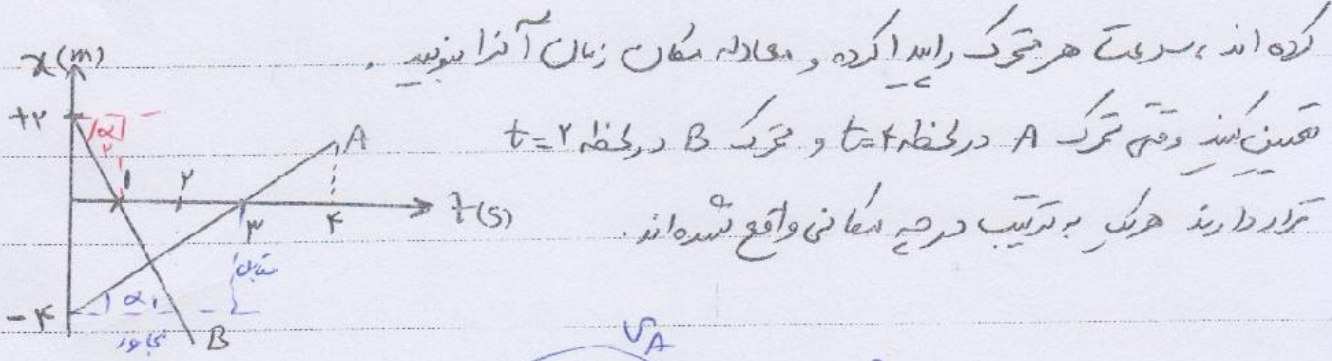 کرده اند، سرعت هر متحرک را پیدا کرده و معادله مکان زمان آنرا بنویسید.
تعیین کنید وقتی متحرک A در لحظه t=۴ و متحرک B در لحظه t=۲
قرار دارند هریک به ترتیب در چه مکانی واقع شده اند.
x(m)
+۲
α۲
۱
۲
۳
۴
t(s)
A
-۴
α۱
مقابل
مجاور
B
V_A